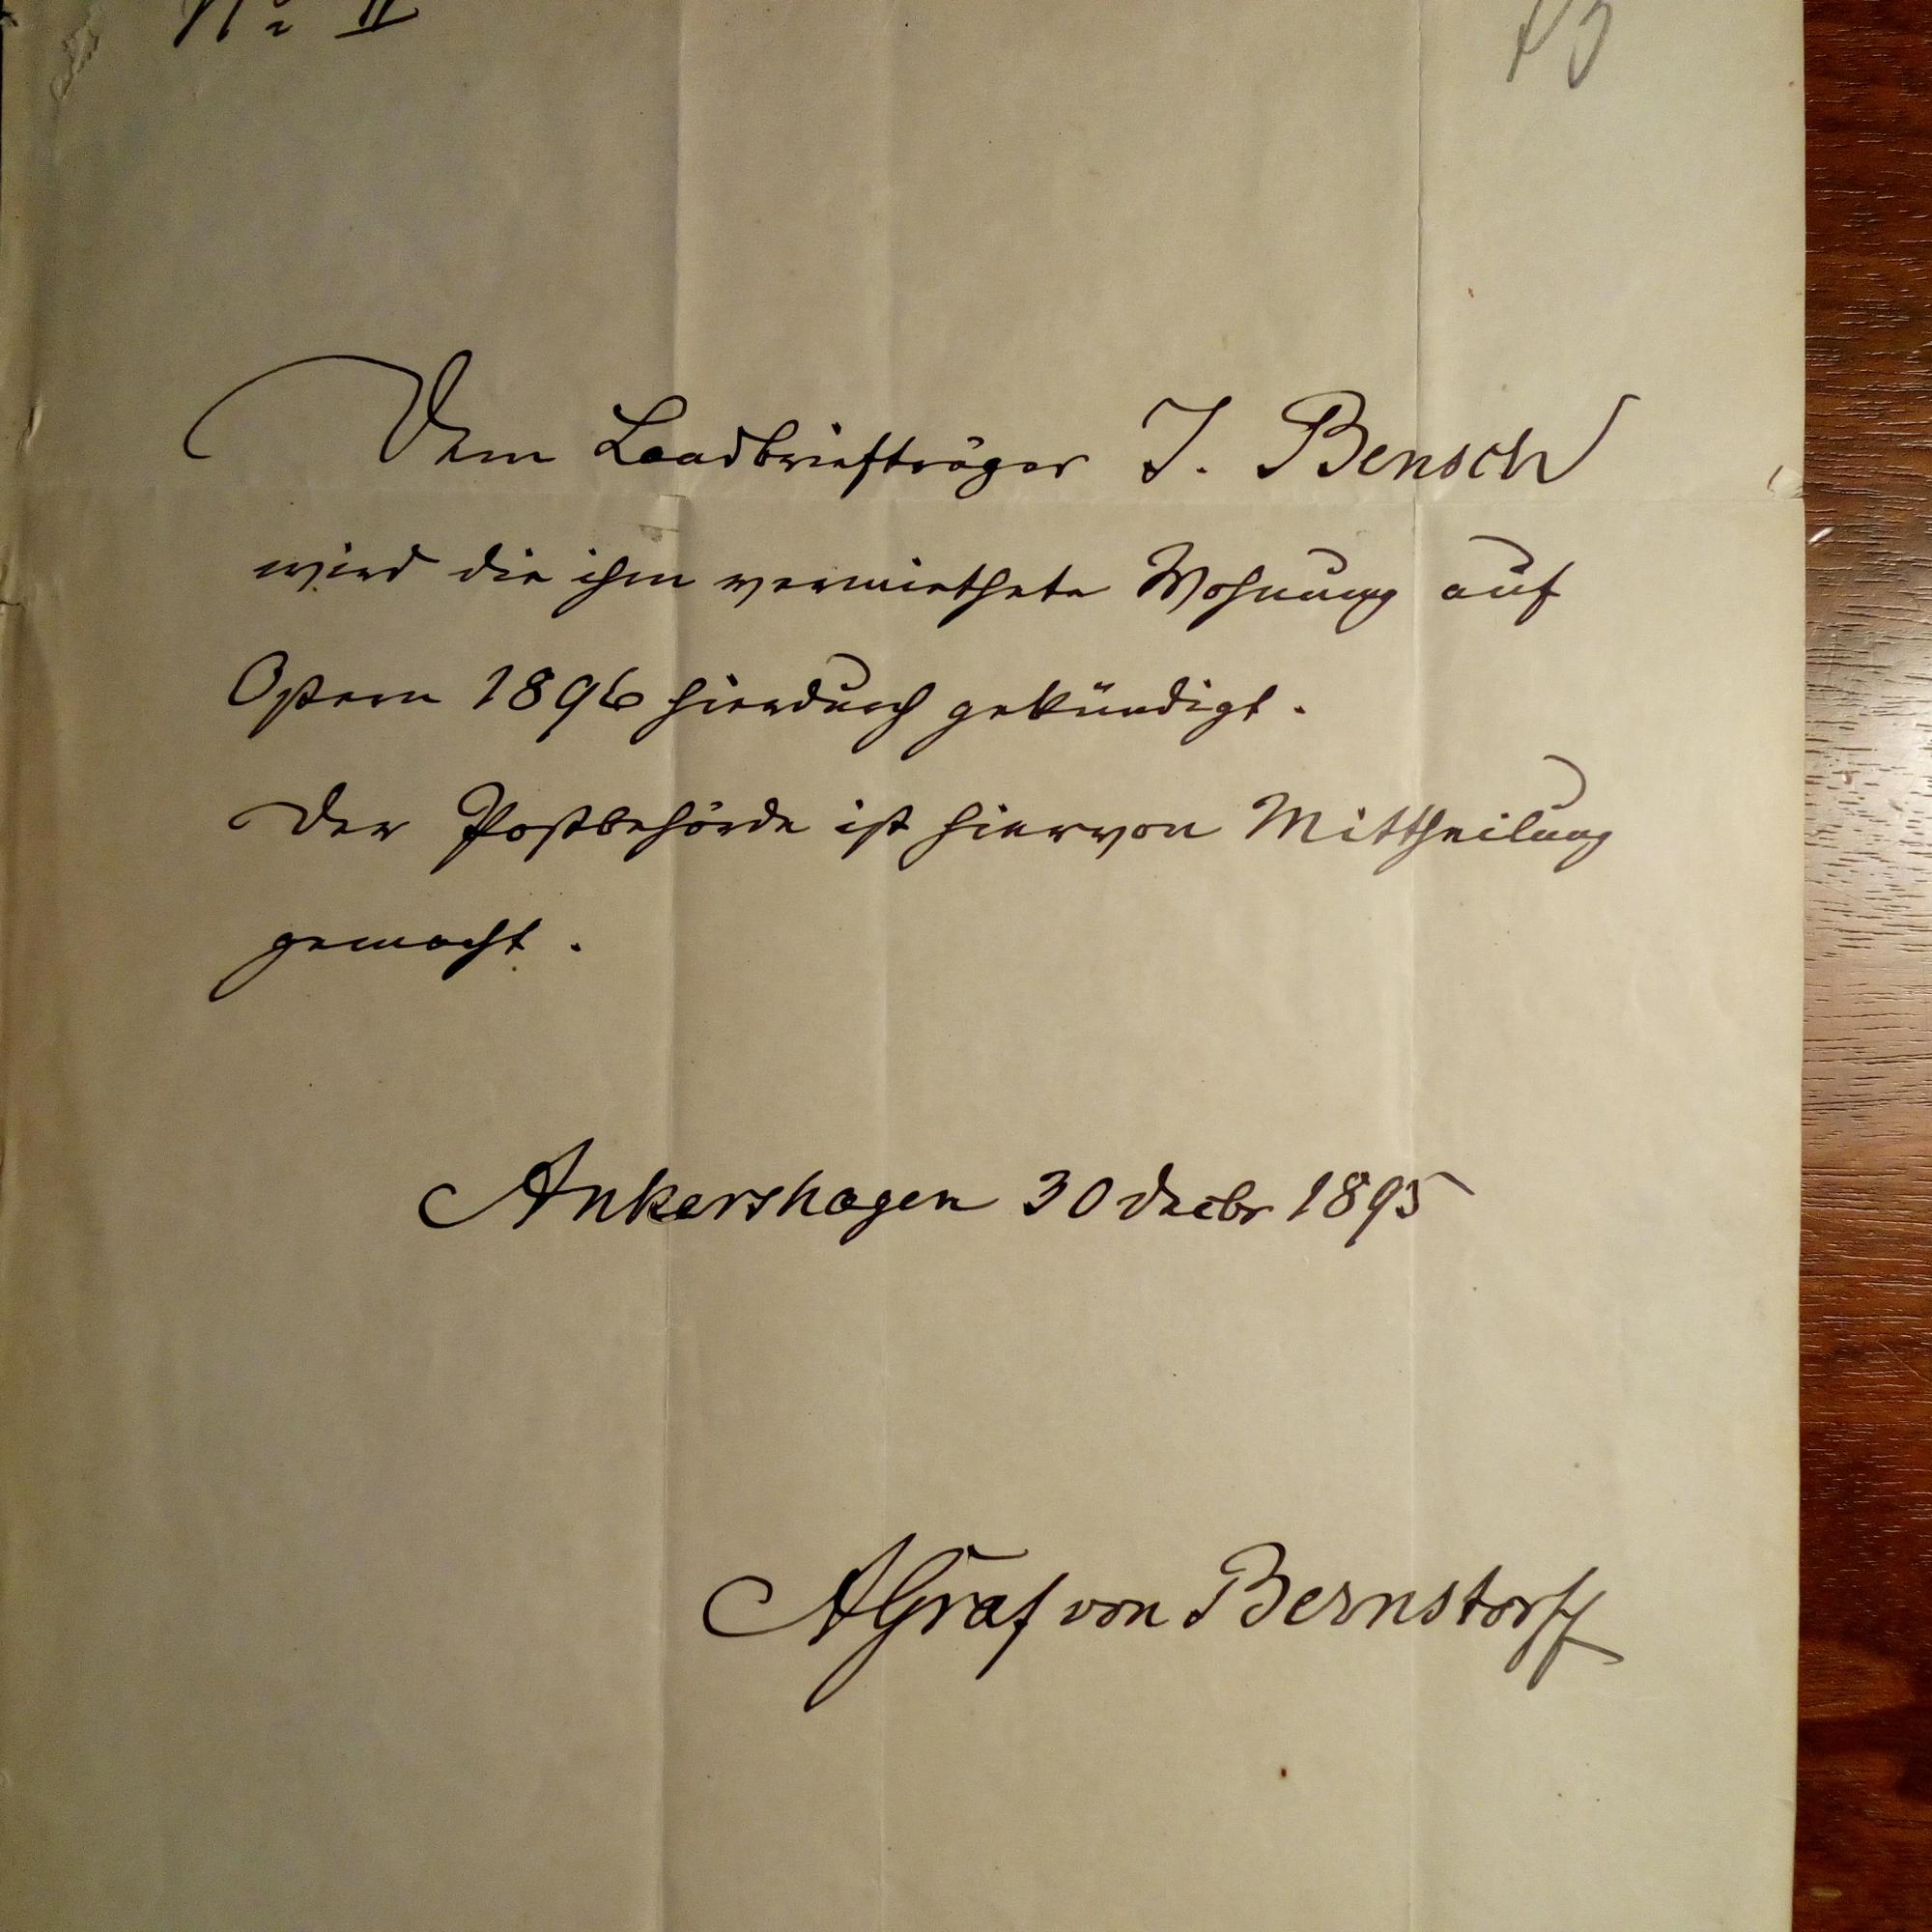 No II
Dem Landbriefträger J. Bensch
wird die ihm vermiethete Wohnung auf
Ostern 1896 hierdurch gekündigt.
Der Postbehörde ist hiervon Mittheilung
gemacht.
Ankershagen 30 Decbr 1895
AGraf von Bernstorff